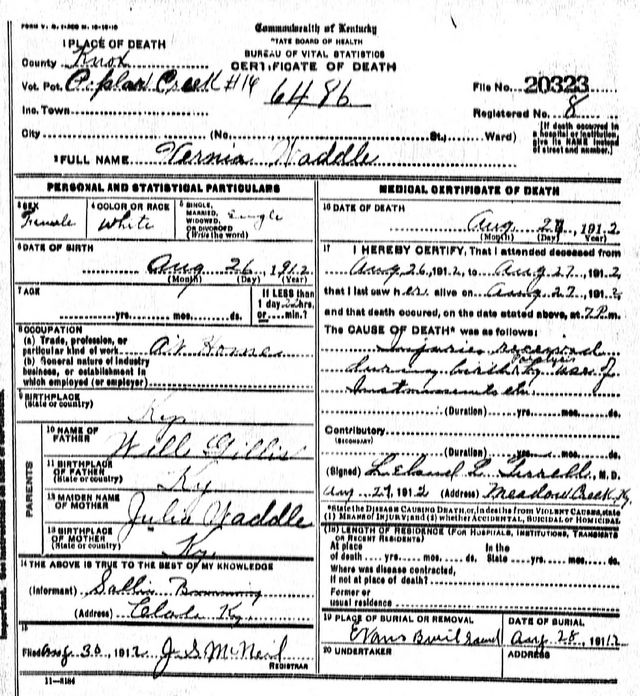 Commonwealth of Kentucky
STATE BOARD OF HEALTH
BUREAU OF VITAL STATISTICS
CERTIFICATE OF DEATH
1 PLACE OF DEATH
County Knox
Vot. Pct. Poplar Creek #16
6486
File No. 20323
Inc. Town
Registered No. 8
City (No. St., Ward)
[If death occurred in a hospital or institution, give its NAME instead of street and number.]
2 FULL NAME Vernia Waddle
PERSONAL AND STATISTICAL PARTICULARS
3 SEX Female
4 COLOR OR RACE White
5 SINGLE, MARRIED, WIDOWED, OR DIVORCED (Write the word) Single
6 DATE OF BIRTH
Aug 26, 1912
(Month) (Day) (Year)
7 AGE
yrs. mos. ds.
If LESS than 1 day hrs. or min.?
8 OCCUPATION
(a) Trade, profession, or
particular kind of work At Home
(b) General nature of industry
business, or establishment in
which employed (or employer)
9 BIRTHPLACE
(State or country) Ky
PARENTS
10 NAME OF FATHER Will Gillis
11 BIRTHPLACE OF FATHER (State or country) Ky
12 MAIDEN NAME OF MOTHER Julia Waddle
13 BIRTHPLACE OF MOTHER (State or country) Ky
14 THE ABOVE IS TRUE TO THE BEST OF MY KNOWLEDGE
(Informant) Sallie Browning
(Address) Ky.
15
Filed Aug 30, 1912 J. S. McNeil
REGISTRAR
11—8184
MEDICAL CERTIFICATE OF DEATH
16 DATE OF DEATH
Aug 27, 1912
(Month) (Day) (Year)
17 I HEREBY CERTIFY, That I attended deceased from
Aug 26, 1912, to Aug 27, 1912,
that I last saw her alive on Aug 27, 1912,
and that death occured, on the date stated above, at 7 P.m.
The CAUSE OF DEATH* was as follows:
Injuries received
Paralysis
during birth by use of
Instruments etc.
(Duration) yrs. mos. ds.
Contributory
(SECONDARY)
(Duration) yrs. mos. ds.
(Signed) Leland L. Terrell, M.D.
Aug. 29, 1912 (Address) Meadow Creek, Ky.
*State the DISEASE CAUSING DEATH, or, in deaths from VIOLENT CAUSES, state (1) MEANS OF INJURY; and (2) whether ACCIDENTAL, SUICIDAL or HOMICIDAL
18 LENGTH OF RESIDENCE (FOR HOSPITALS, INSTITUTIONS, TRANSIENTS OR RECENT RESIDENTS)
At place of death yrs. mos. ds. In the State yrs. mos. ds.
Where was disease contracted,
if not at place of death?
Former or
usual residence
19 PLACE OF BURIAL OR REMOVAL
Evans
DATE OF BURIAL
Aug 28, 1912
20 UNDERTAKER
ADDRESS